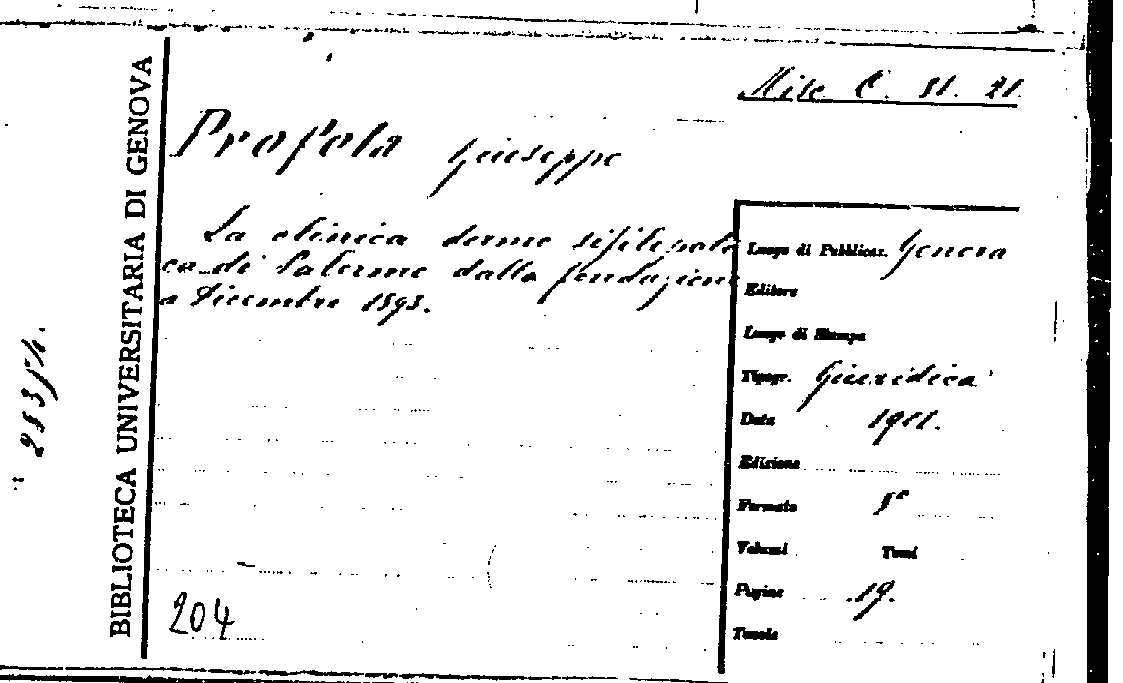 BIBLIOTECA UNIVERSITARIA DI GENOVA
Misc C. 31. 21.
Profeta Giuseppe
La clinica dermo sifilopati
ca di Palermo dalla fondazione
a Dicembre 1893.
Luogo di Pubblicaz. Genova
Editore
Luogo di Stampa
Tipogr. Giuridica
Data 1911.
Edizione
Formato 8º
Volumi Tomi
Pagine 19.
Tavole
204